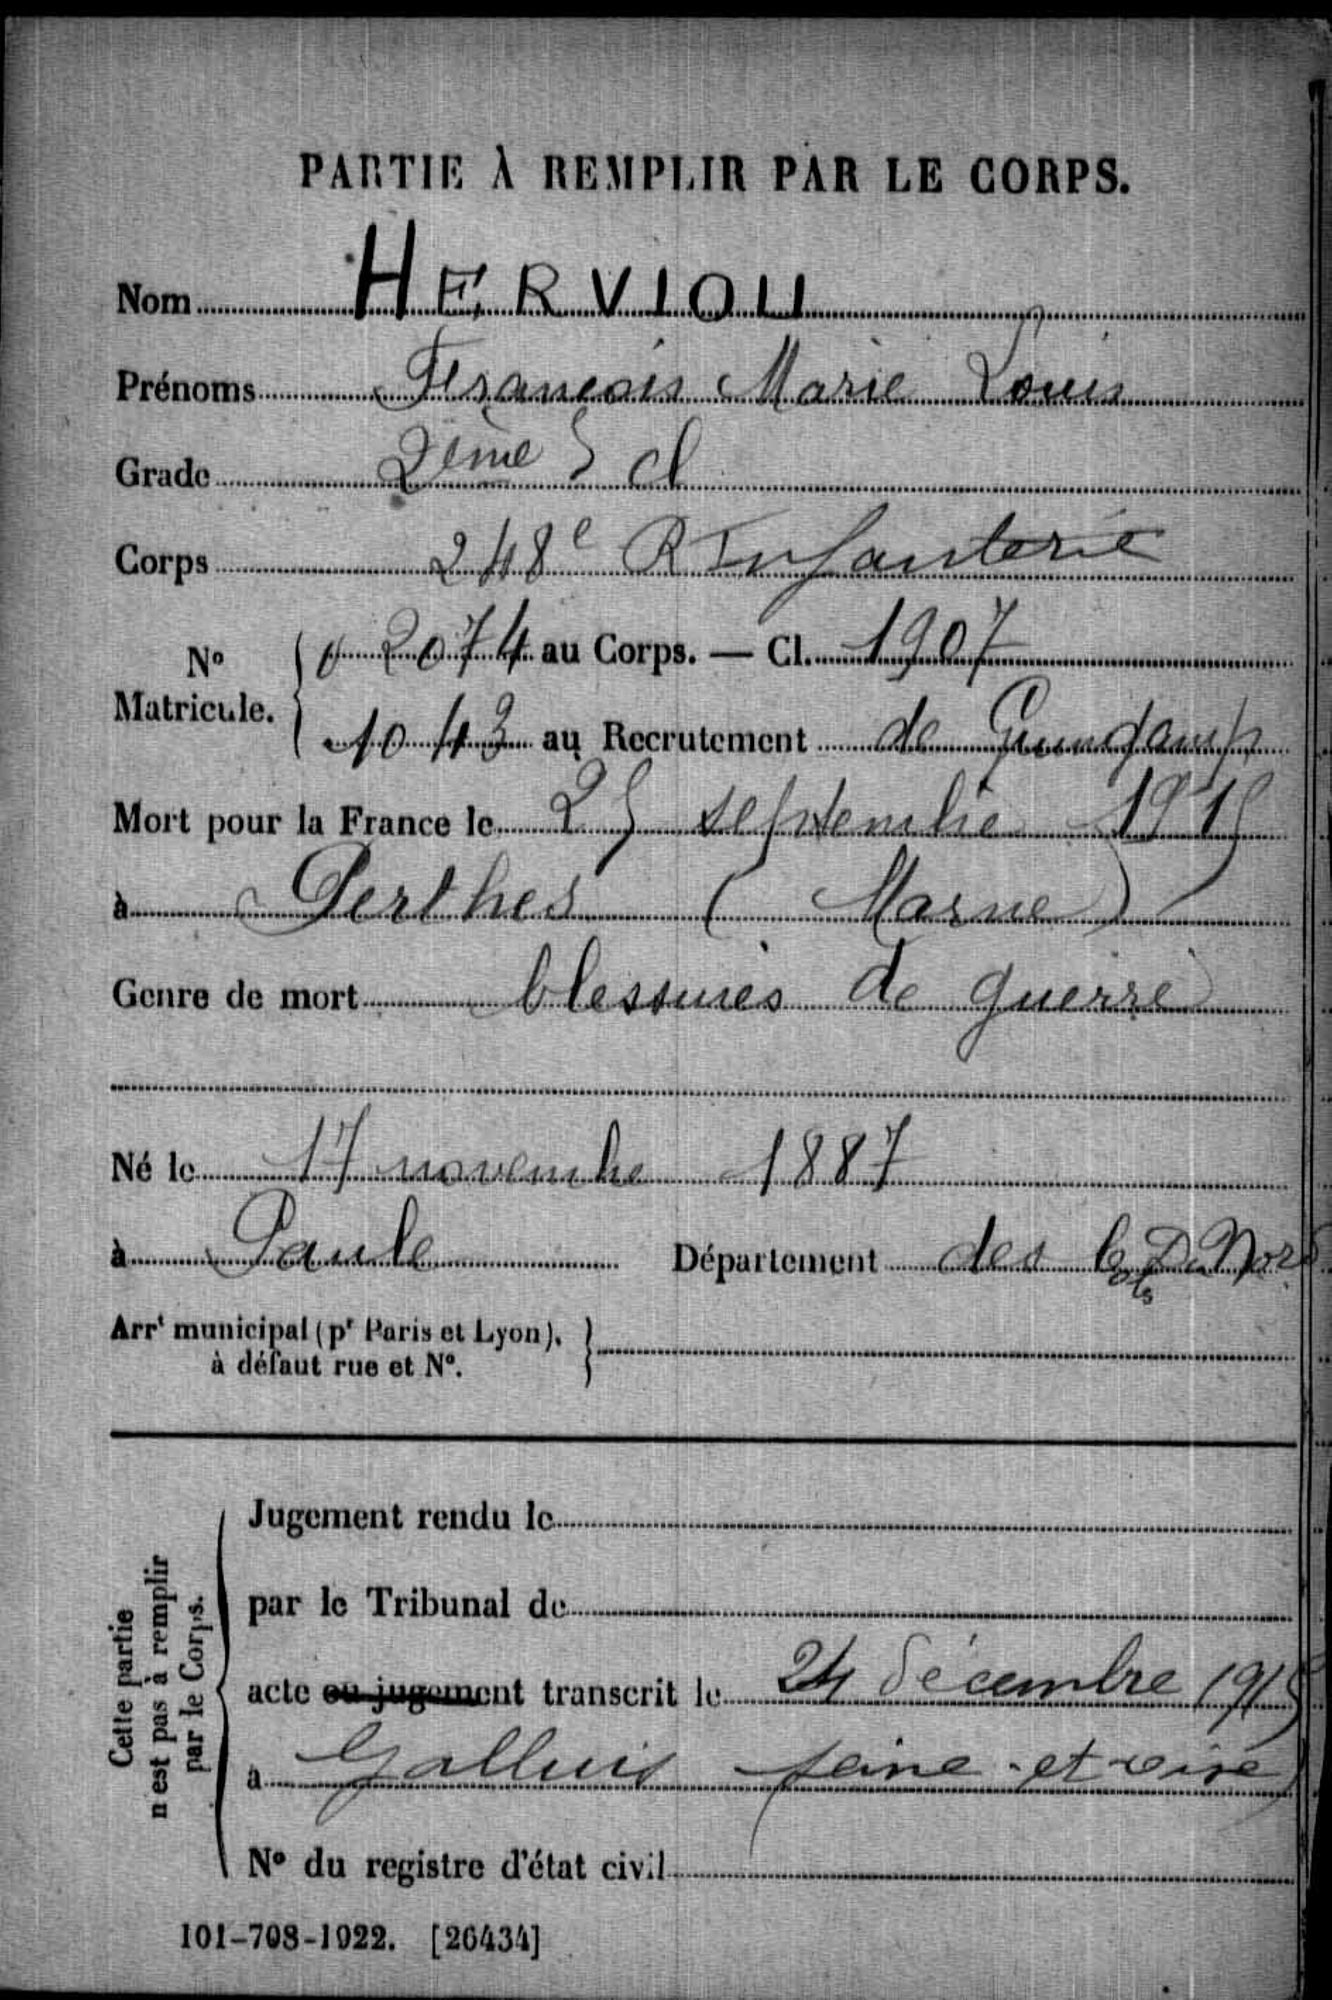 PARTIE À REMPLIR PAR LE CORPS.
Nom HERVIOU
Prénoms François Marie Louis
Grade 2ème S cl
Corps 248e R Infanterie
No Matricule. 02074 au Corps. — Cl. 1907
1043 au Recrutement de Guingamp
Mort pour la France le 25 septembre 1915
à Perthes (Marne)
Genre de mort blessures de guerre
Né le 17 novembre 1887
à Paule Département des Cotes Du Nord
Arrt municipal (pr Paris et Lyon), à défaut rue et No.
Cette partie n'est pas à remplir par le Corps.
Jugement rendu le
par le Tribunal de
acte ou jugement transcrit le 24 décembre 1915
à Galluis Seine-et-oise
No du registre d'état civil
101-708-1922. [26434]